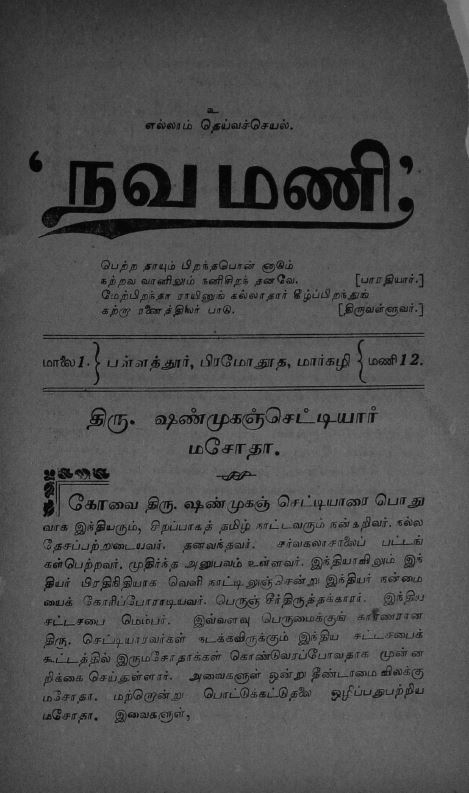 உ
எல்லாம் தெய்வச்செயல்.
‘நவ மணி’
பெற்ற தாயும் பிறந்தபொன் னாடும்
நற்றவ வானினும் நனிசிறந் தனவே. [பாரதியார்.]
மேற்பிறந்தா ராயினுங் கல்லாதார் கீழ்ப்பிறந்துங்
கற்றா ரனைத்திலர் பாடு. [திருவள்ளுவர்.]
மாலை 1. } பள்ளத்தூர், பிரமோதூத, மார்கழி { மணி 12.
திரு. ஷண்முகஞ்செட்டியார்
மசோதா.
கோவை திரு. ஷண்முகஞ் செட்டியாரை பொது
வாக இந்தியரும், சிறப்பாகத் தமிழ் நாட்டவரும் நன்கறிவர். நல்ல
தேசப்பற்றுடையவர். தனவந்தவர். சர்வகலாசாலைப் பட்டங்
கள்பெற்றவர். முதிர்ந்த அனுபவம் உள்ளவர். இந்தியாவிலும் இந்
தியர் பிரதிநிதியாக வெளி நாட்டினுஞ்சென்று இந்தியர் நன்மை
யைக் கோரிப்போராடியவர். பெருஞ் சீர்திருத்தக்காரர். இந்திய
சட்டசபை மெம்பர். இவ்வளவு பெருமைக்குங் காரணரான
திரு. செட்டியாரவர்கள் நடக்கவிருக்கும் இந்திய சட்டசபைக்
கூட்டத்தில் இருமசோதாக்கள் கொண்டுவரப்போவதாக முன்ன
றிக்கை செய்துள்ளார். அவைகளுள் ஒன்று தீண்டாமை விலக்கு
மசோதா. மற்றொன்று பொட்டுக்கட்டுதலை ஒழிப்பதுபற்றிய
மசோதா. இவைகளுள்,